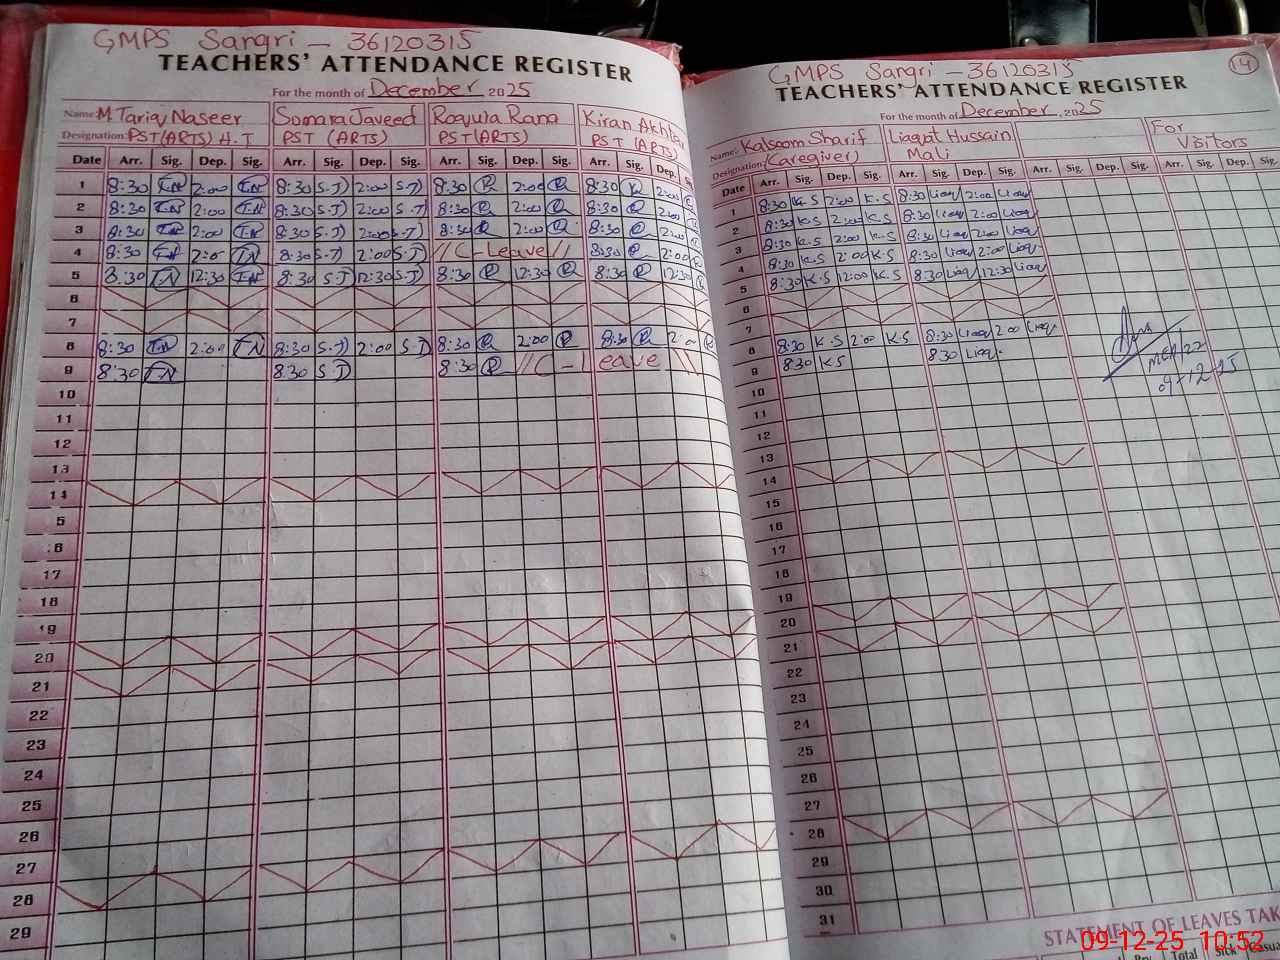 GMPS Sangri - 36120315
TEACHERS' ATTENDANCE REGISTER
For the month of December 2025
Name: M Tariq Naseer Sumara Javeed Roqula Rana Kiran Akhtar
Designation: PST (ARTS) H.T PST (ARTS) PST (ARTS) PST (ARTS)
Date Arr. Sig. Dep. Sig. Arr. Sig. Dep. Sig. Arr. Sig. Dep. Sig. Arr. Sig. Dep.
1 8:30 TN 2:00 TN 8:30 S.J 2:00 S.J 8:30 R 2:00 R 8:30 R 2:00
2 8:30 TN 2:00 TN 8:30 S.J 2:00 S.J 8:30 R 2:00 R 8:30 R 2:00
3 8:30 TN 2:00 TN 8:30 S.J 2:00 S.J 8:30 R 2:00 R 8:30 R 2:00
4 8:30 TN 2:00 TN 8:30 S.J 2:00 S.J // C-Leave // 8:30 R 2:00
5 8:30 TN 12:30 TN 8:30 S.J 12:30 S.J 8:30 R 12:30 R 8:30 R 12:30
6
7
8 8:30 TN 2:00 TN 8:30 S.J 2:00 S.J 8:30 R 2:00 R 8:30 R 2:00
9 8:30 TN 8:30 S.J 8:30 R // C-Leave \\
10
11
12
13
14
15
16
17
18
19
20
21
22
23
24
25
26
27
28
29
GMPS Sangri - 36120315
14
TEACHERS' ATTENDANCE REGISTER
For the month of December 2025
Name: Kalsoom Sharif Liaqat Hussain For
Designation: (Caregiver) Mali Visitors
Date Arr. Sig. Dep. Sig. Arr. Sig. Dep. Sig. Arr. Sig. Dep. Sig. Arr. Sig. Dep. Sig.
1 8:30 K.S 2:00 K.S 8:30 Liaq 2:00 Liaq
2 8:30 K.S 2:00 K.S 8:30 Liaq 2:00 Liaq
3 8:30 K.S 2:00 K.S 8:30 Liaq 2:00 Liaq
4 8:30 K.S 2:00 K.S 8:30 Liaq 2:00 Liaq
5 8:30 K.S 12:00 K.S 8:30 Liaq 12:30 Liaq
6
7
8 8:30 K.S 2:00 K.S 8:30 Liaq 2:00 Liaq
9 8:30 K.S 8:30 Liaq.
MEA 22
09-12-25
10
11
12
13
14
15
16
17
18
19
20
21
22
23
24
25
26
27
28
29
30
31
STATEMENT OF LEAVES TAK
Total Sick Casua
09-12-25 10:52